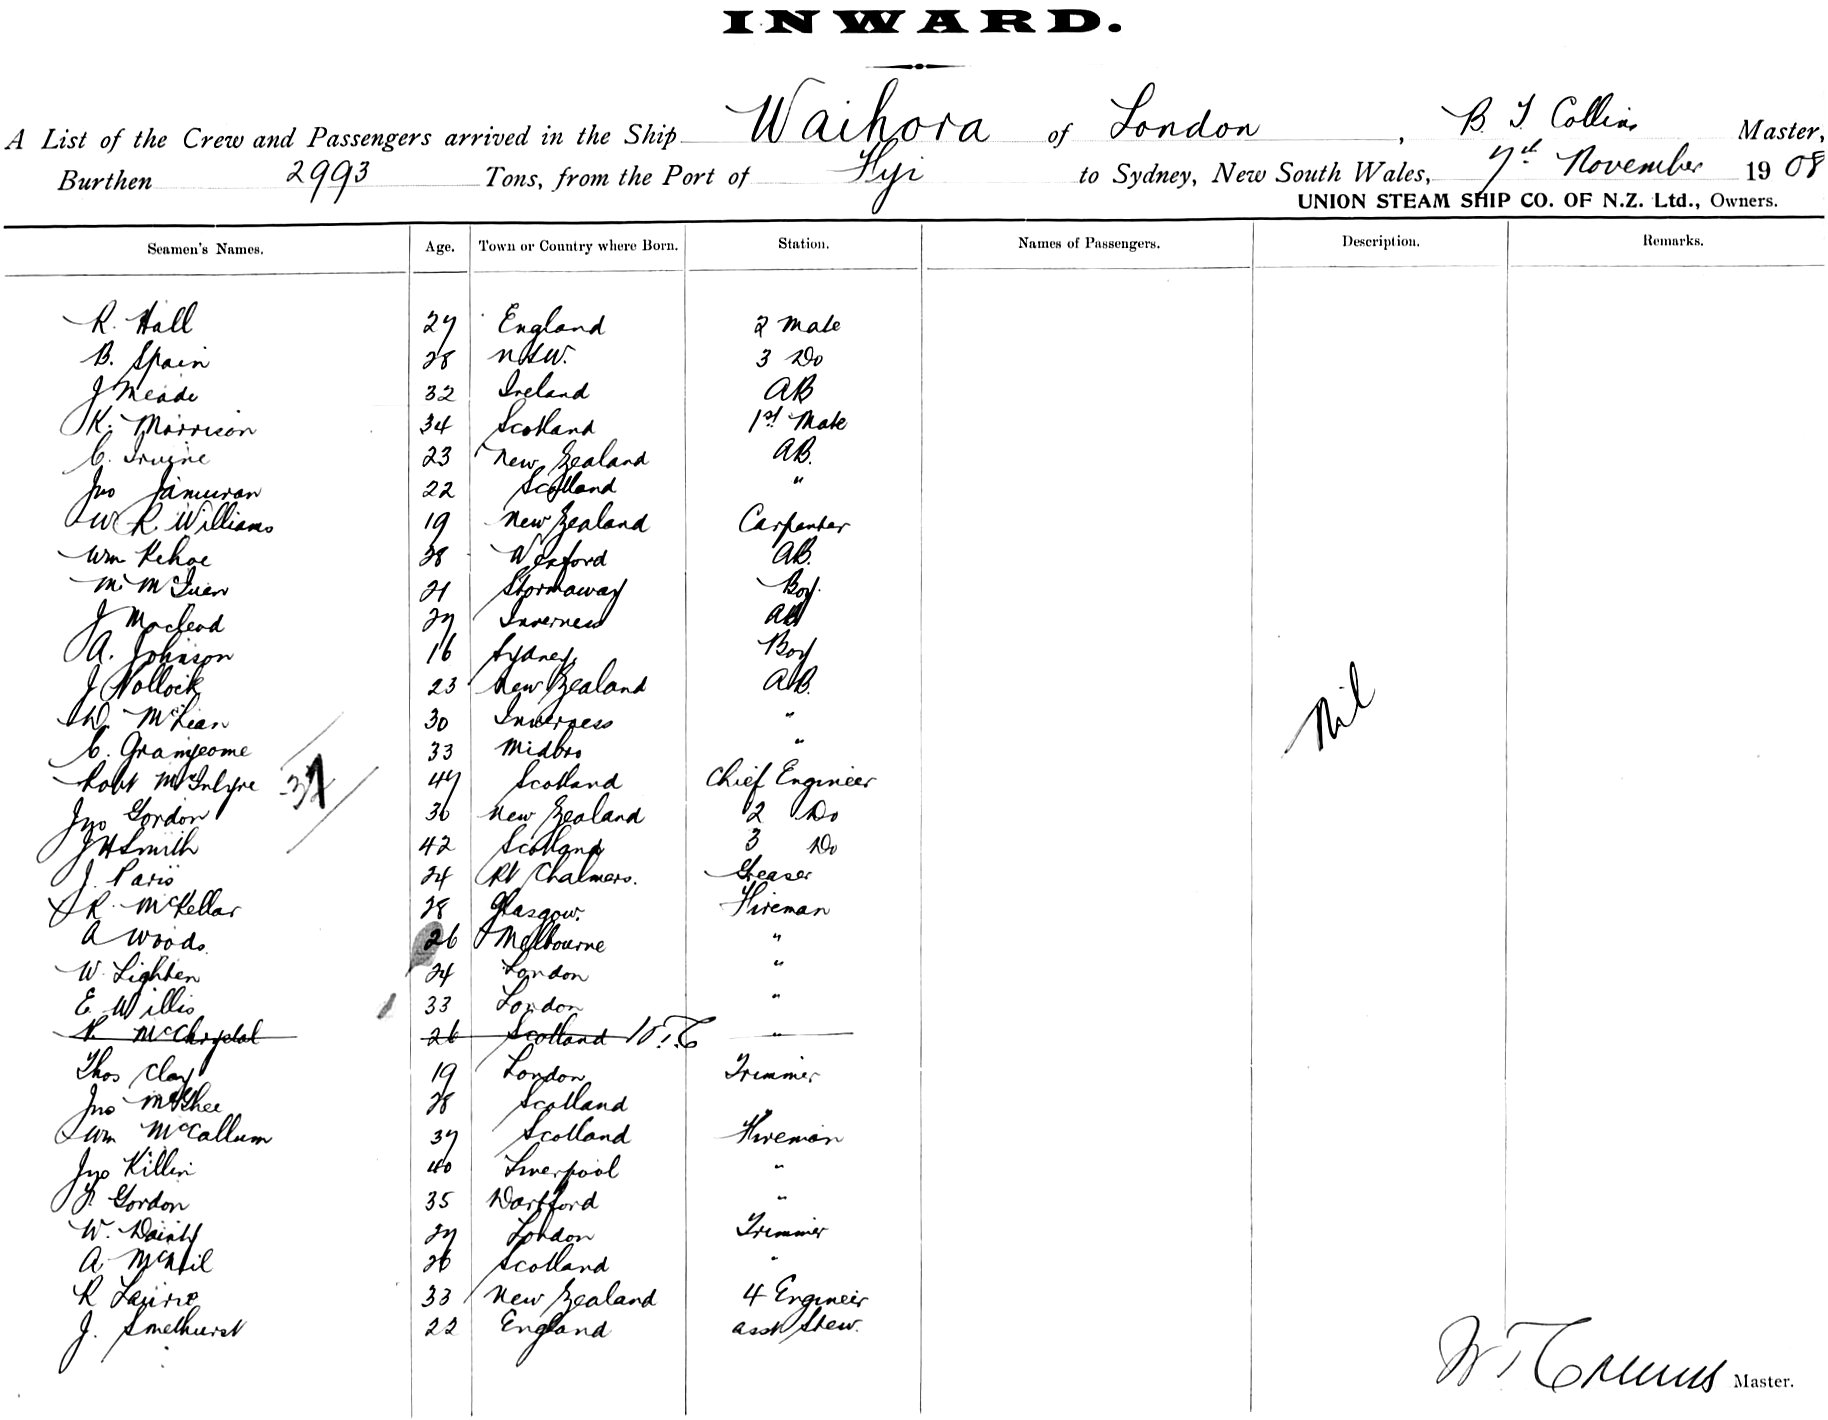 INWARD.
A List of the Crew and Passengers arrived in the Ship Waihora of London, B. T. Collins Master,
Burthen 2993 Tons, from the Port of Fyi to Sydney, New South Wales, 7th November 1908
UNION STEAM SHIP CO. OF N.Z. Ltd., Owners.
Seamen's Names. Age. Town or Country where Born. Station. Names of Passengers. Description. Remarks.
R. Hall 27 England 2 Mate
B. Spain 28 NSW. 3 Do
J Meade 32 Ireland AB
K. Morrison 34 Scotland 1st Mate
C. Irvine 23 New Zealand AB.
Jno 22 Scotland "
W R Williams 19 New Zealand Carpenter
Wm Kehoe 38 Wexford AB.
M. 21 Stornaway Boy.
J Macleod 27 Inverness AB
A. Johnson 16 Sydney Boy
J 23 New Zealand AB.
D. McLean 30 Inverness "
C. 33 Midbro "
Robt McIntyre 47 Scotland Chief Engineer
Jno Gordon 30 New Zealand 2 Do
J H Smith 42 Scotland 3 Do
J. Paris 24 Pt Chalmers. Greaser
R. McKellar 28 Glasgow. Fireman
A Woods. 26 Melbourne "
W. Lighten 24 London "
E. Willis 33 London "
McChrystal 26 Scotland "
Thos Clay 19 London Trimmer
Jno McGhee 28 Scotland
Wm McCallum 37 Scotland Fireman
Jno Killin 40 Liverpool "
Gordon 35 Dartford "
W. Dainty 27 London Trimmer
A. McNeil 26 Scotland "
R Laurie 33 New Zealand 4 Engineer
J. Smethurst 22 England asst Stew.
Nil
Master.